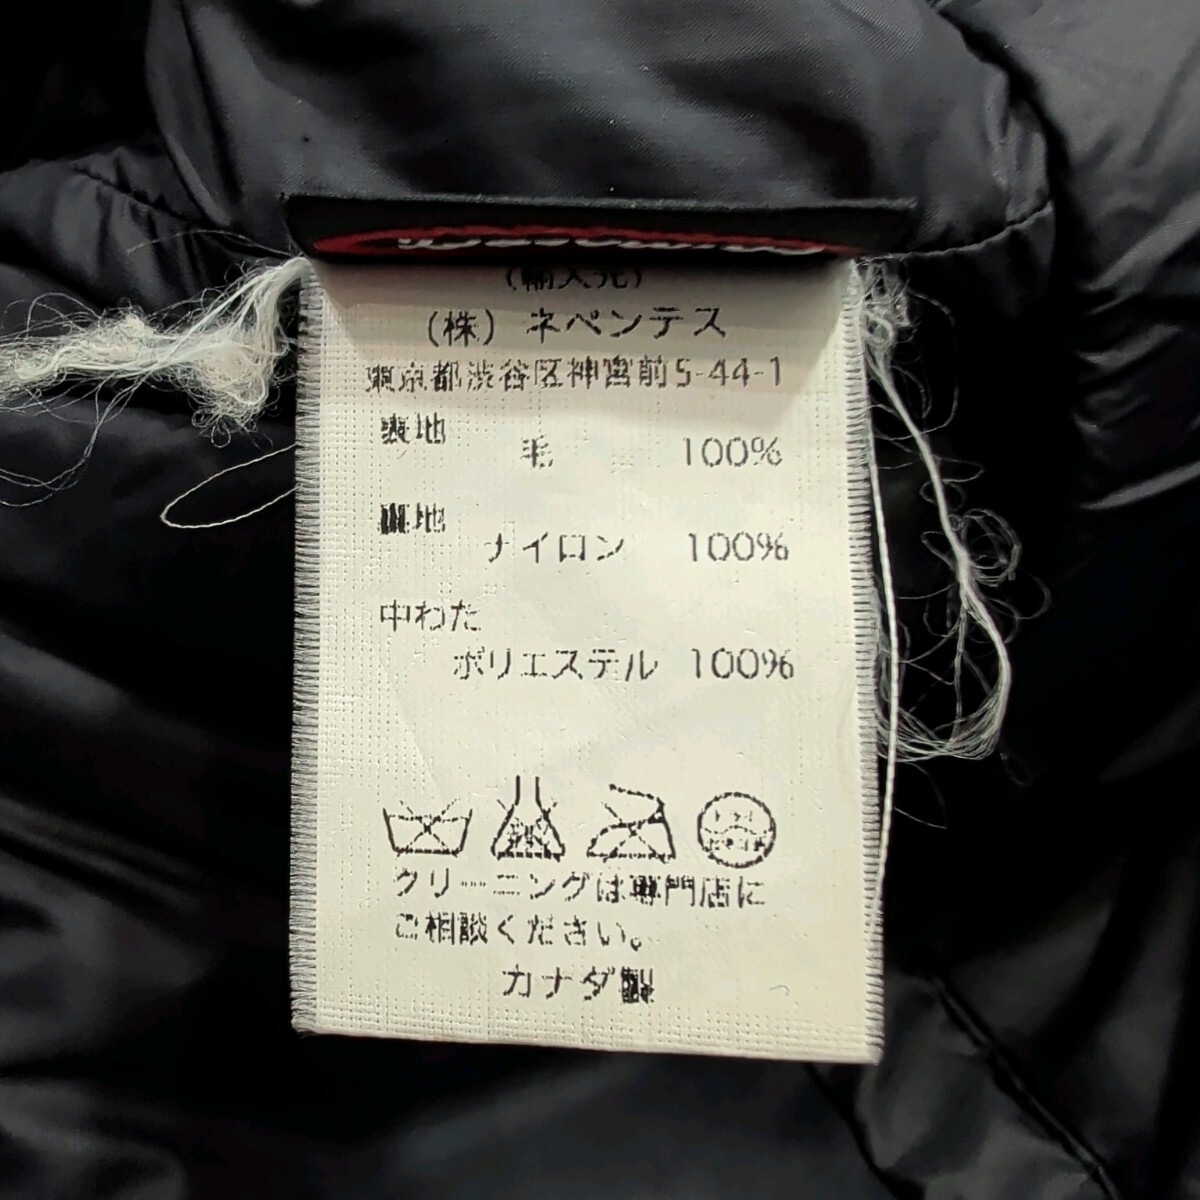 (輸入元)
(株) ネペンテス
東京都渋谷区神宮前5-44-1
表地
毛 100%
裏地
ナイロン 100%
中わた
ポリエステル 100%
クリーニングは専門店に
ご相談ください。
カナダ製